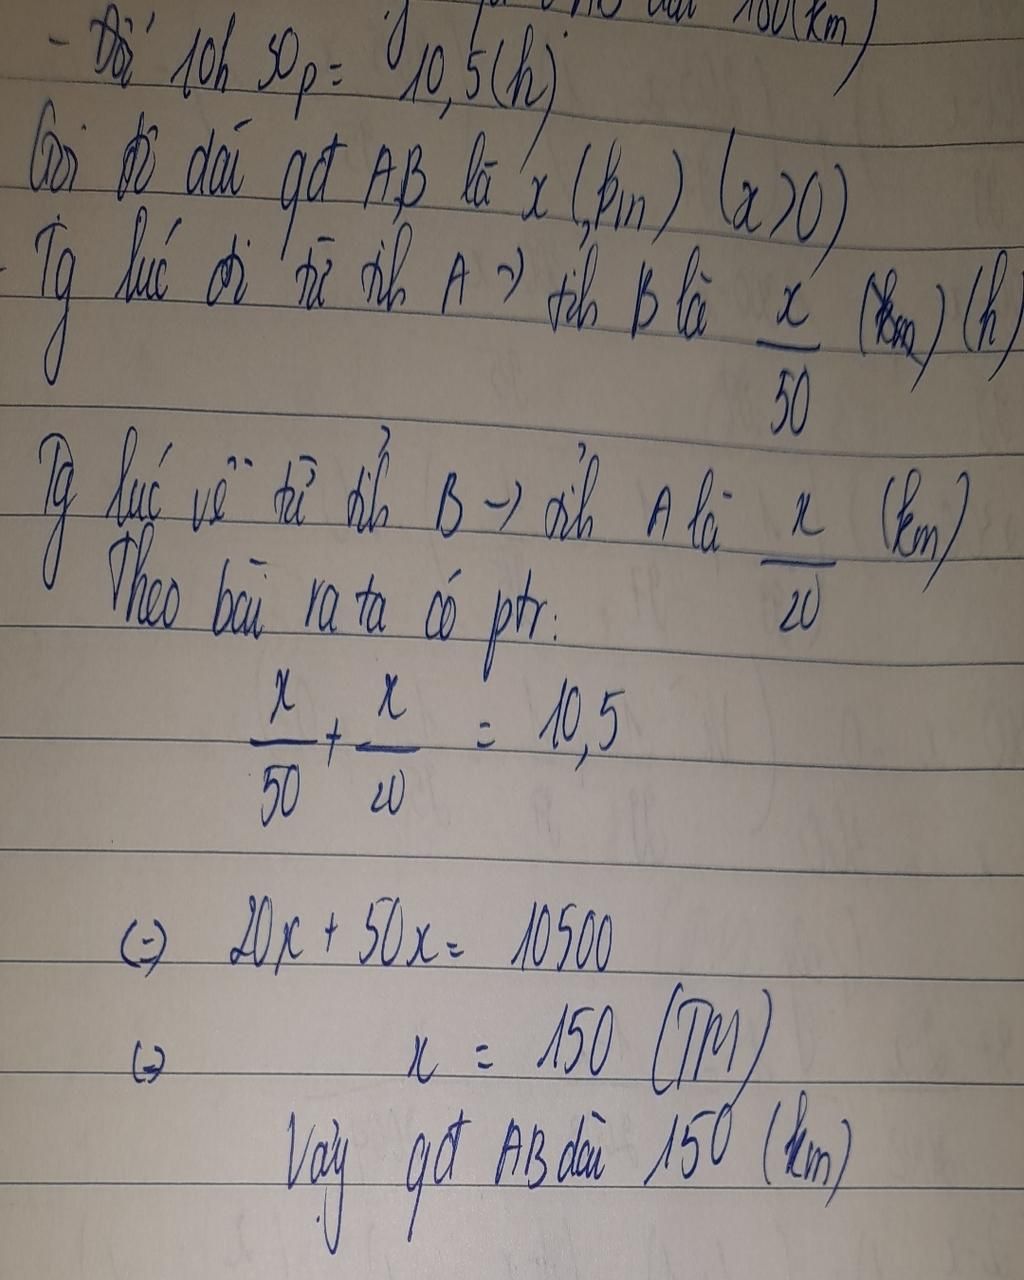 dài 180(km)
- Đổi 10h 30p = 10,5(h)
Gọi độ dài qđ AB là x (km) (x>0)
- Tg lúc đi từ tỉh A -> tỉh B là x/50 (km) (h)
Tg lúc về từ tỉh B -> tỉh A là x/20 (km)
Theo bài ra ta có ptr:
x/50 + x/20 = 10,5
(=) 20x + 50x = 10500
(=) x = 150 (TM)
Vậy qđ AB dài 150 (km)